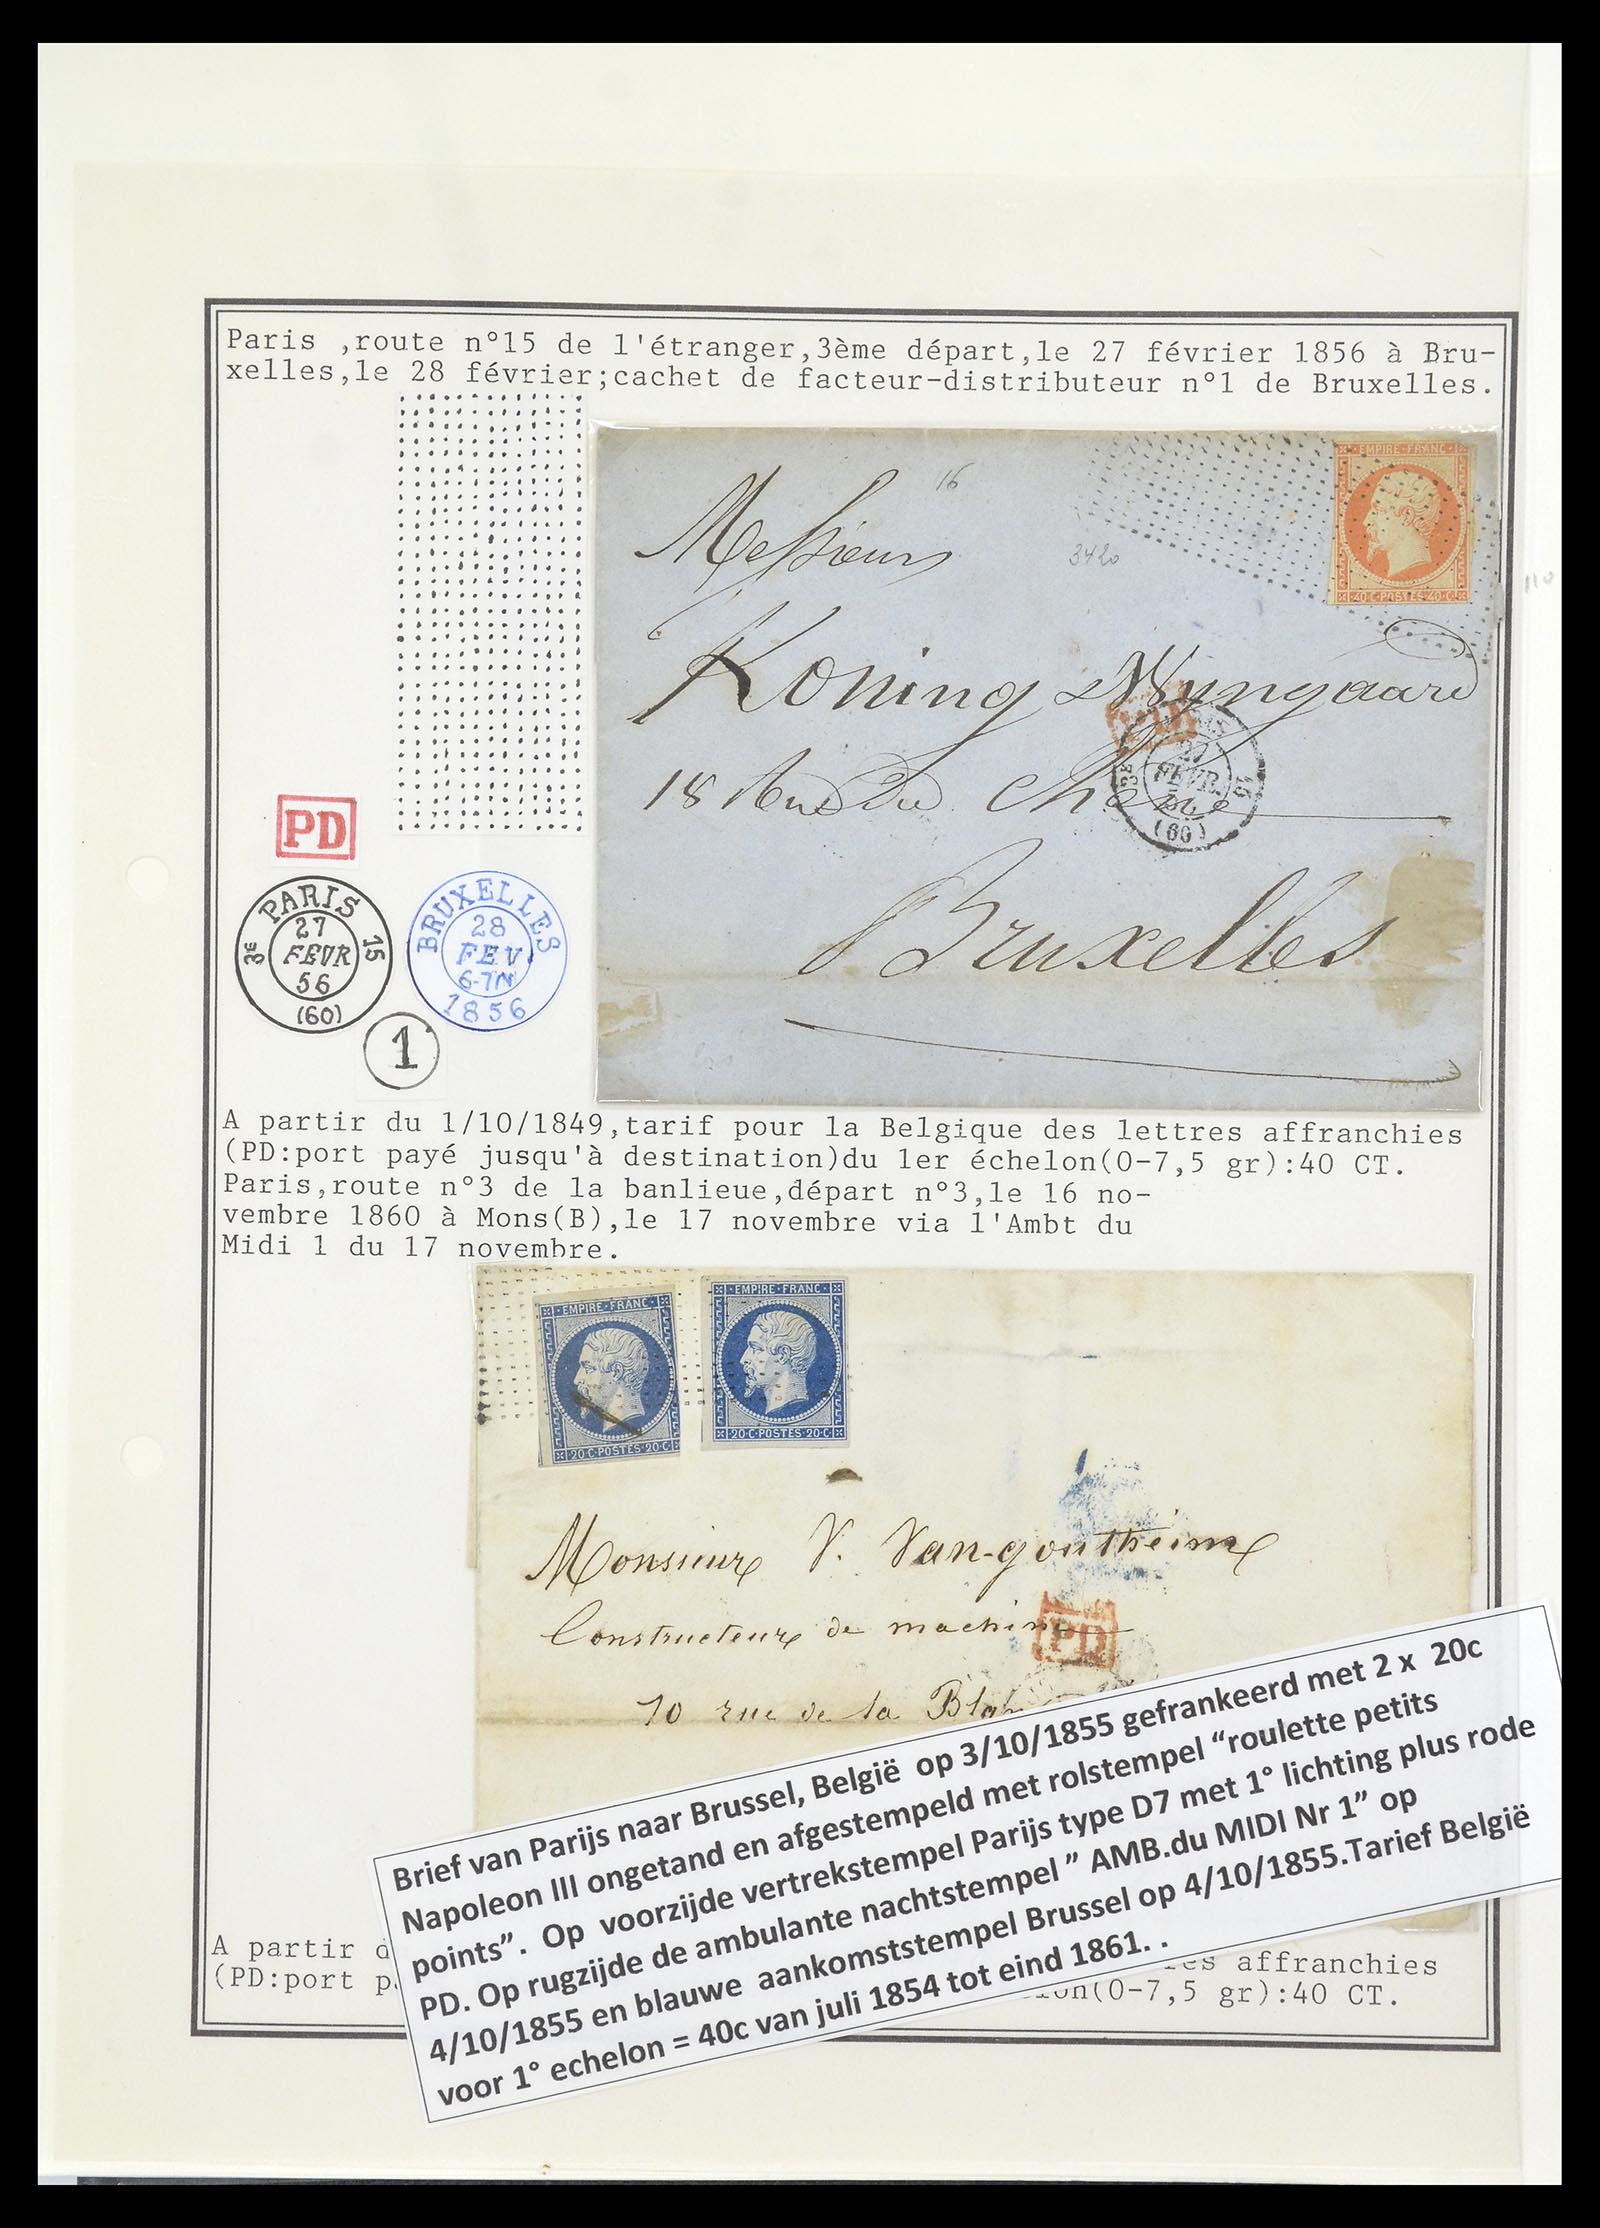 Paris ,route n°15 de l'étranger,3ème départ,le 27 février 1856 à Bru-
xelles,le 28 février;cachet de facteur-distributeur n°1 de Bruxelles.
16
3420
EMPIRE·FRANC·
40·C·POSTES·40·C·
Messieurs
Koning & Wyngaard
18 Rue du Chêne
Bruxelles
27
FEVR.
(60)
3E
15
PD
PARIS
27
3E FEVR 15
56
(60)
BRUXELLES
28
FEV.
1856
1
110
A partir du 1/10/1849,tarif pour la Belgique des lettres affranchies
(PD:port payé jusqu'à destination)du 1er échelon(0-7,5 gr):40 CT.
Paris,route n°3 de la banlieue,départ n°3,le 16 no-
vembre 1860 à Mons(B),le 17 novembre via l'Ambt du
Midi 1 du 17 novembre.
·EMPIRE·FRANC· ·EMPIRE·FRANC·
20·C·POSTES·20·C· 20·C·POSTES·20·C·
Monsieur V. Van-goutheim
Constructeur de machin
PD
10 rue de la Blan
Brief van Parijs naar Brussel, België op 3/10/1855 gefrankeerd met 2 x 20c
Napoleon III ongetand en afgestempeld met rolstempel “roulette petits
points”. Op voorzijde vertrekstempel Parijs type D7 met 1° lichting plus rode
PD. Op rugzijde de ambulante nachtstempel ” AMB.du MIDI Nr 1” op
4/10/1855 en blauwe aankomststempel Brussel op 4/10/1855.Tarief België
voor 1° echelon = 40c van juli 1854 tot eind 1861. .
A partir d res affranchies
(PD:port pa lon(0-7,5 gr):40 CT.